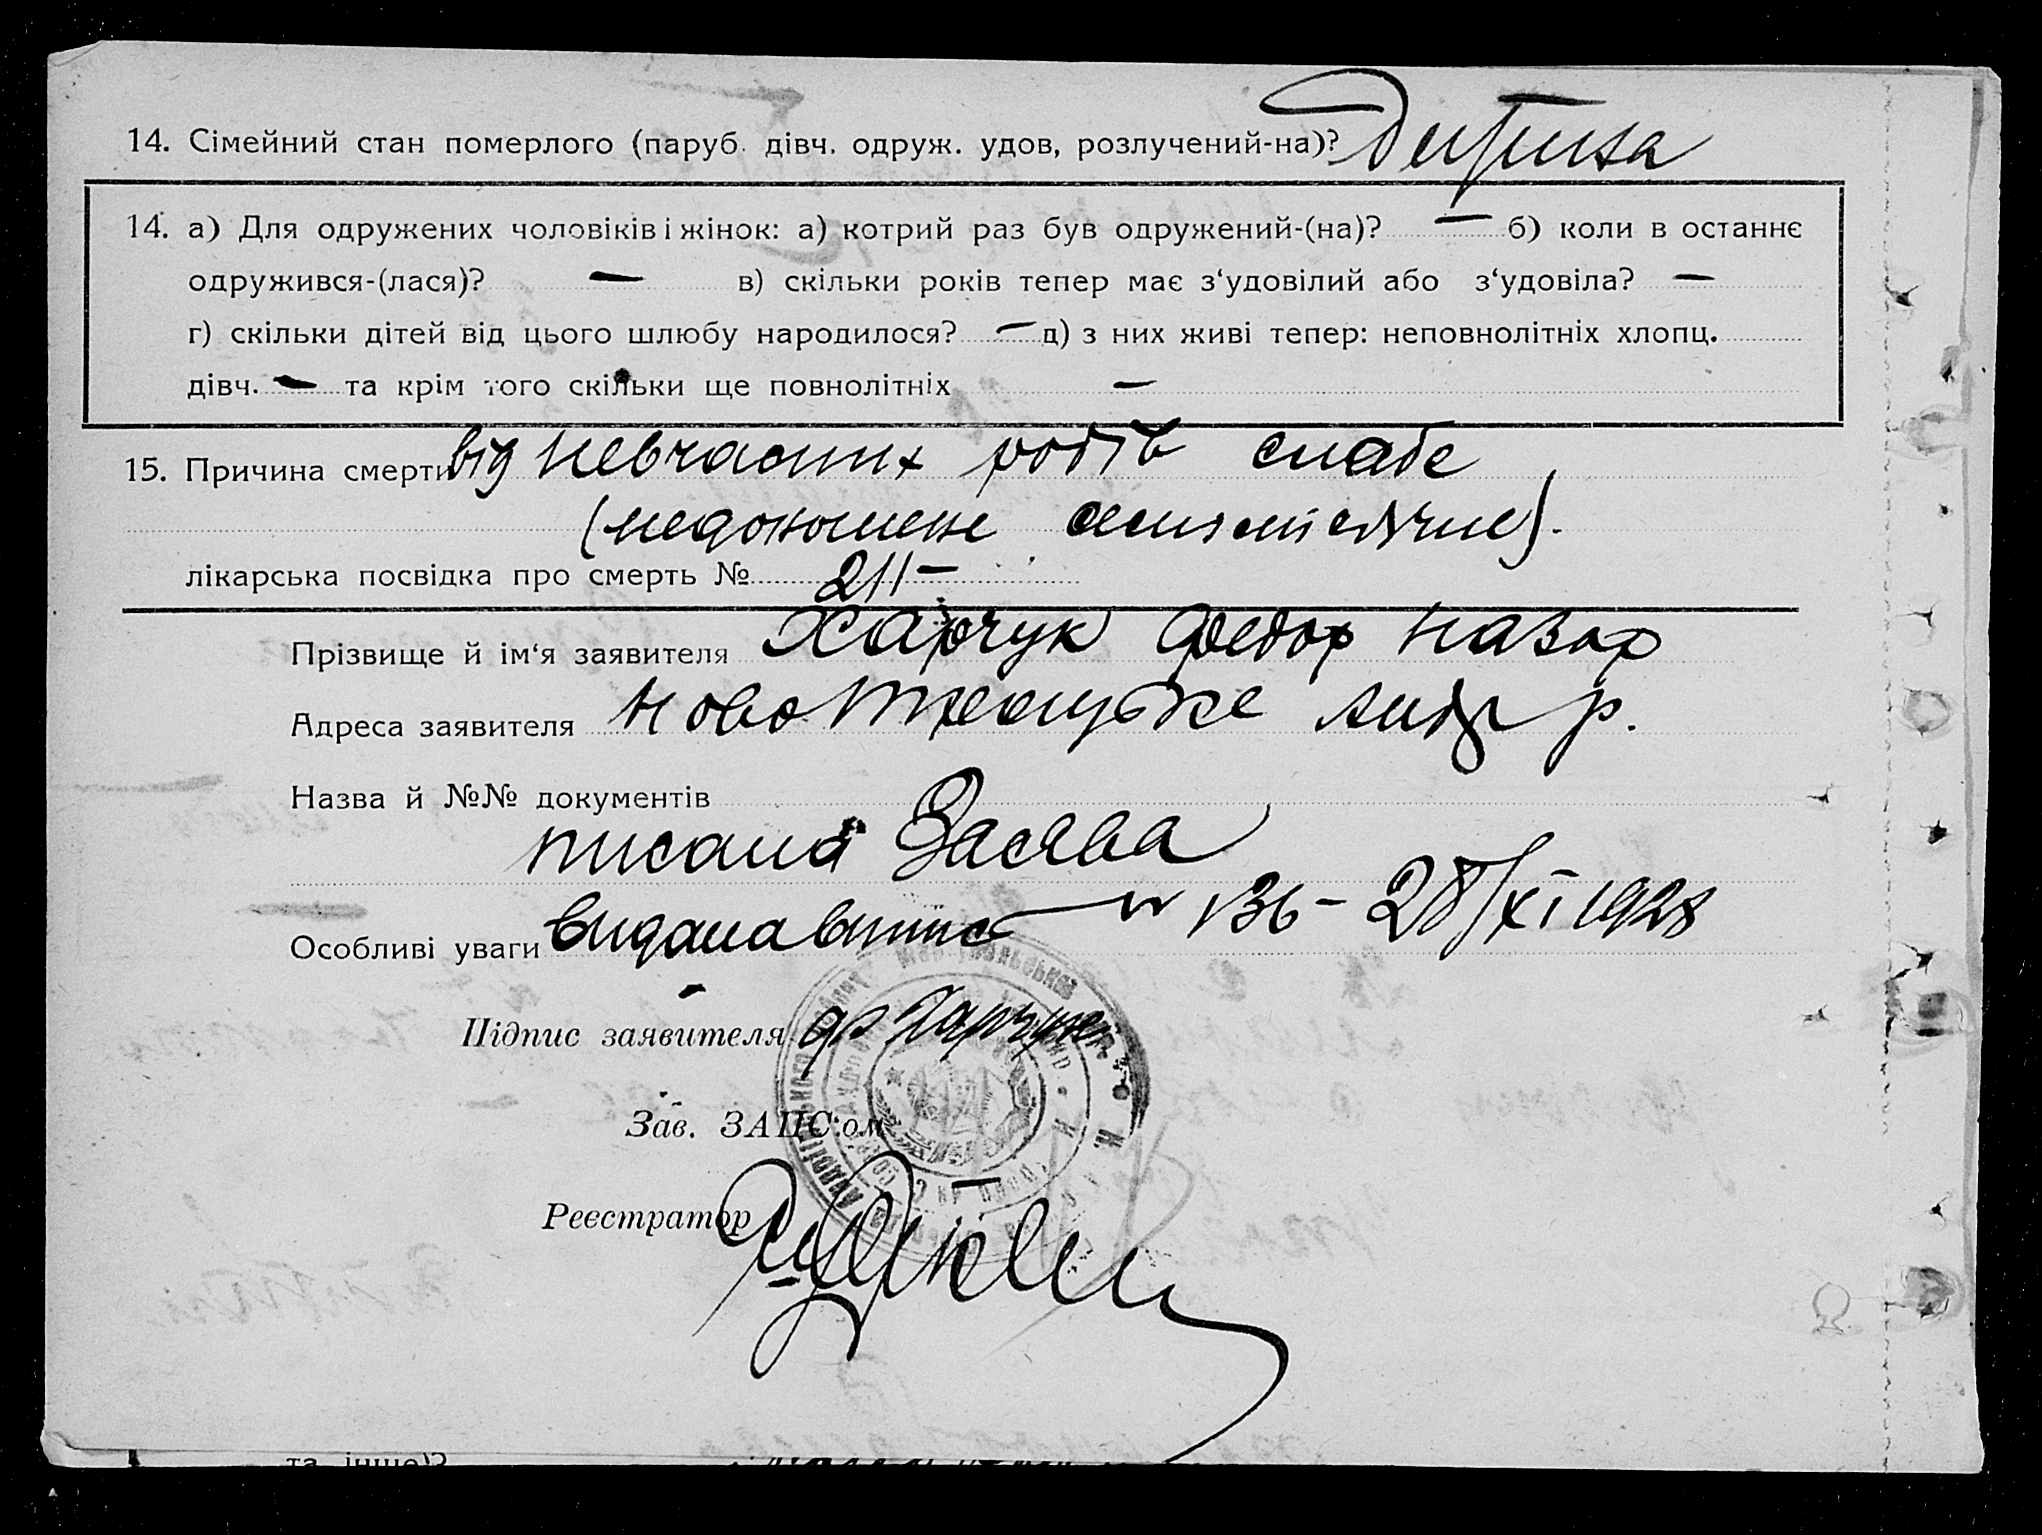 14. Сімейний стан померлого (паруб. дівч. одруж. удов, розлучений-на)? Дитина
14. а) Для одружених чоловіків і жінок: а) котрий раз був одружений-(на)? — б) коли в останнє
одружився-(лася)? — в) скільки років тепер має з‘удовілий або з‘удовіла? —
г) скільки дітей від цього шлюбу народилося? — д) з них живі тепер: неповнолітніх хлопц.
дівч. — та крім того скільки ще повнолітніх —
15. Причина смерти від невчасних родів слабе
(недоношене семимісячне).
лікарська посвідка про смерть № 211 –
Прізвище й ім‘я заявителя Харчук Федор Назар
Адреса заявителя Ново р.
Назва й №№ документів
писана Заява
Особливі уваги видана випис № 136 – 28/XI 1928
Підпис заявителя Харчук
Зав. ЗАПС‘ом
Реєстратор
та інше)?